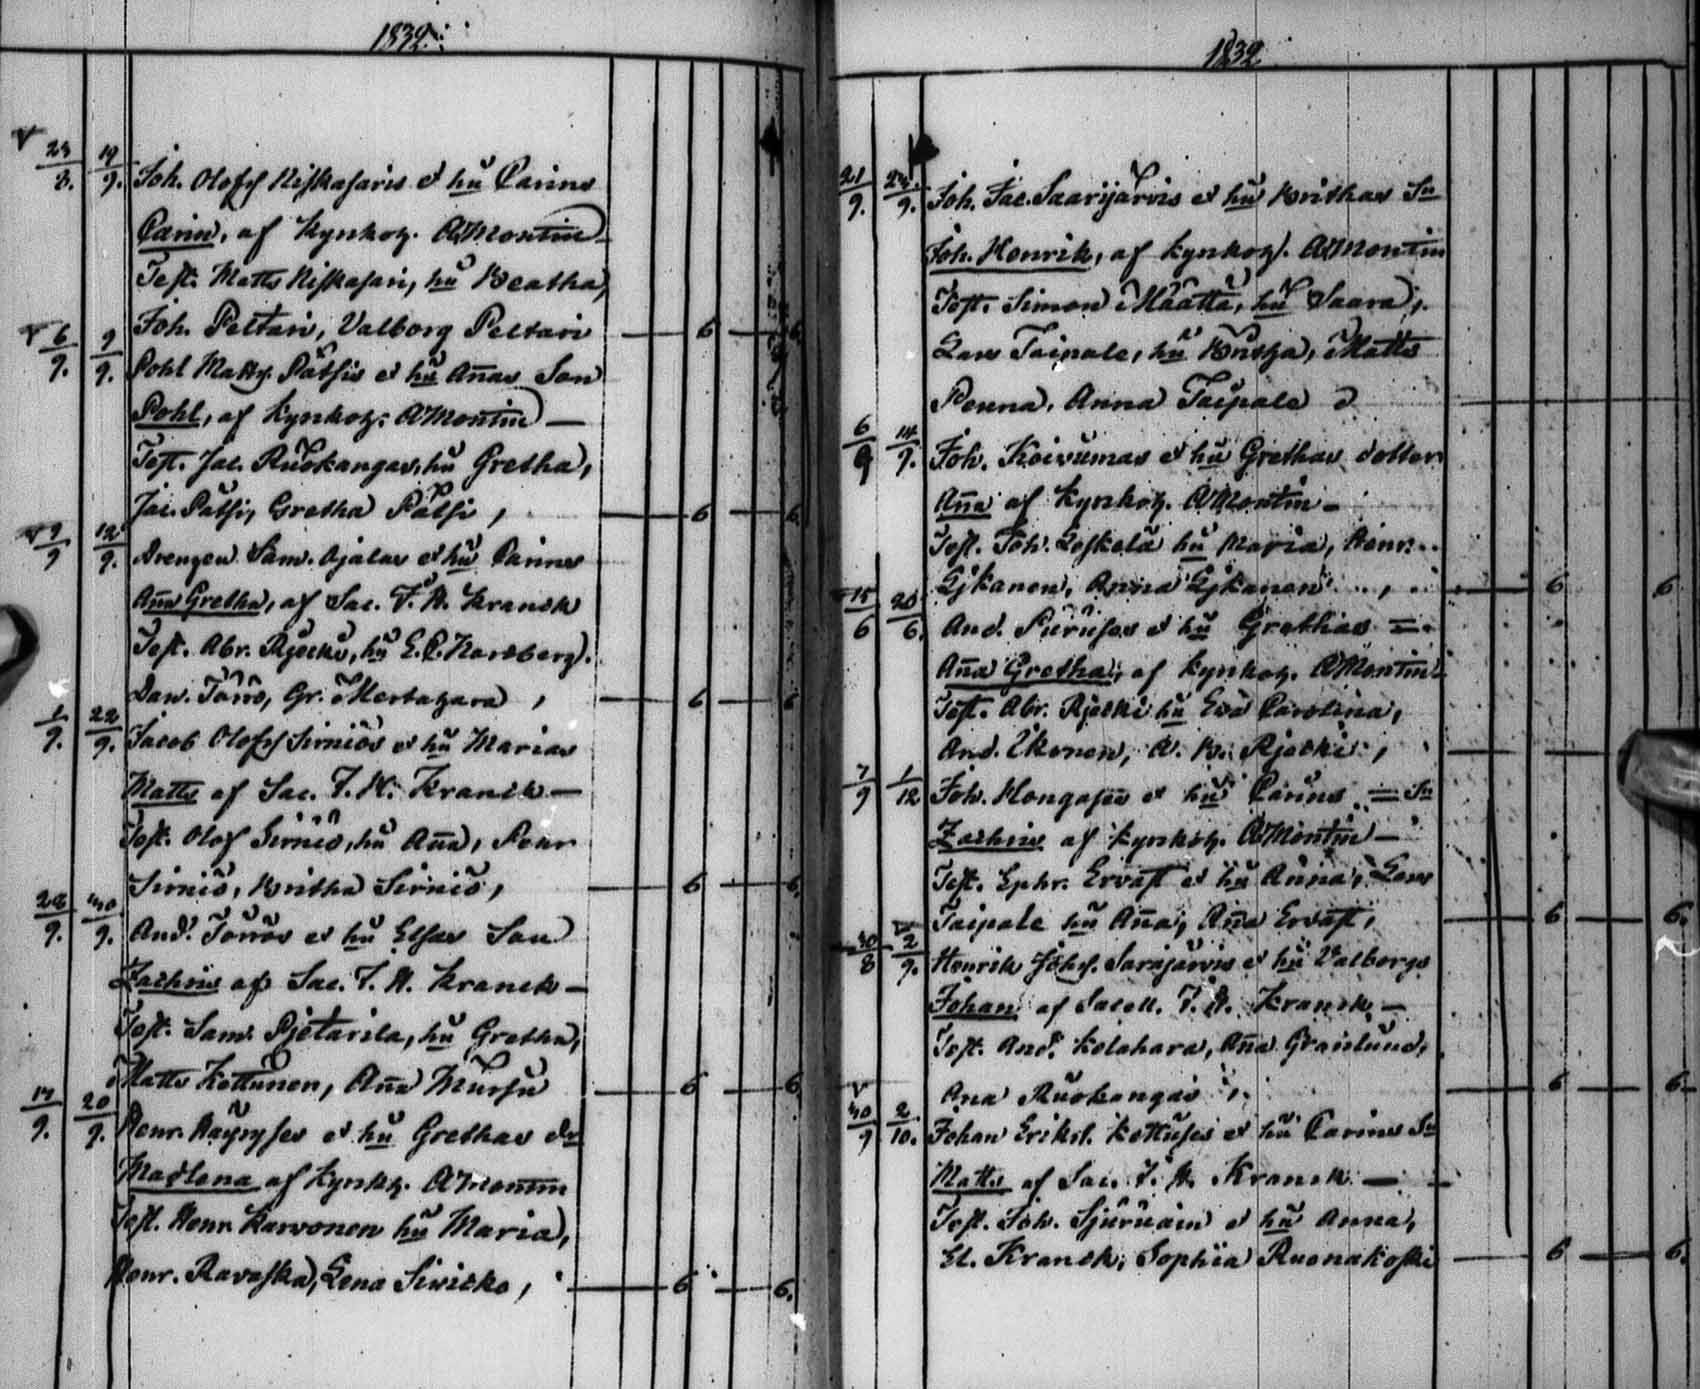 1832.
23/8. 19/9. Joh. Olofss Niskasaris et hu Carins
Carin, af Kyrkoh. A Montin
Test. Matts Niskasari, hu Beatha,
Joh. Peltari, Valborg Peltari — 6 — 6
6/9. 9/9. Pohl Matts. Pätsis et hu Añas Son
Pohl, af Kyrkoh. A Montin —
Test. Jac. Ruokangas, hu Gretha,
Jac. Pätsi, Gretha Pätsi, — 6 — 6
9/9 12/9. Drengen Sam. Ajalas et hu Carins
Aña Gretha, af Sac. F. H. Kranck
Test. Abr. Rjecki, hu E. C. Nordberg.
Dan. Törrö, Gr. Mertajara, — 6 — 6
1/9. 22/9. Jacob Olofss Sirniös et hu Marias
Matts af Sac. F. H. Kranck —
Test. Olof Sirniö, hu Aña, Pehr
Sirniö, Britha Sirniö, — 6 — 6
28/9. 30/9. And. Törrös et hu Elsas Son
Zachris af Sac. F. H. Kranck —
Test. Sam. Pjetarila, hu Gretha,
Matts Kottunen, Aña Mursu — 6 — 6
17/9. 20/9. Henr. Häyryses et hu Grethas dr
Madlena af Kyrkh. A Montin
Test. Henr. Karvonen hu Maria,
Henr. Ravaska, Lena Siwicko, — 6 — 6.
1832
21/9. 23/9. Joh. Jac. Saarijärvis et hu Brithas Sn
Joh. Henrik, af Kyrkoh. A Montin
Test. Simon Määttä, hu Saara,
Lars Taipale, hu Britha, Matts
Penna, Anna Taipale
6/9 14/9. Joh. Koivumas et hu Grethas dotter
Aña af Kyrkoh. A Montin —
Test. Joh. Loskela hu Maria, Henr.
Ljkanen, Anna Ljkanen, — 6 — 6
15/6 20/6. And. Puruses et hu Grethas =
Aña Gretha, af Kyrkoh. A Montin
Test. Abr. Rjecki hu Eva Carolina,
And. Ikonen, A. B. Rjecki,
7/9 1/12 Joh. Hongases et hu Carins = Sn
Zachris af Kyrkoh. A Montin —
Test. Ephr. Ervast et hu Anna, Lars
Taipale hu Aña, Aña Ervast, — 6 — 6.
30/8 2/9. Henrik Johss. Sarajärvis et hu Valborgs
Johan af Sacell. F. H. Kranck —
Test. And. Kolahara, Aña Granlund,
Ana Ruokangas, — 6 — 6.
30/9 2/10. Johan Eriks. Kottuses et hu Carins Sn
Matts af Sac. F. H. Kranck —
Test. Joh. Sjuruain et hu Anna,
El. Kranck, Sophia Ruonakoski — 6 — 6.